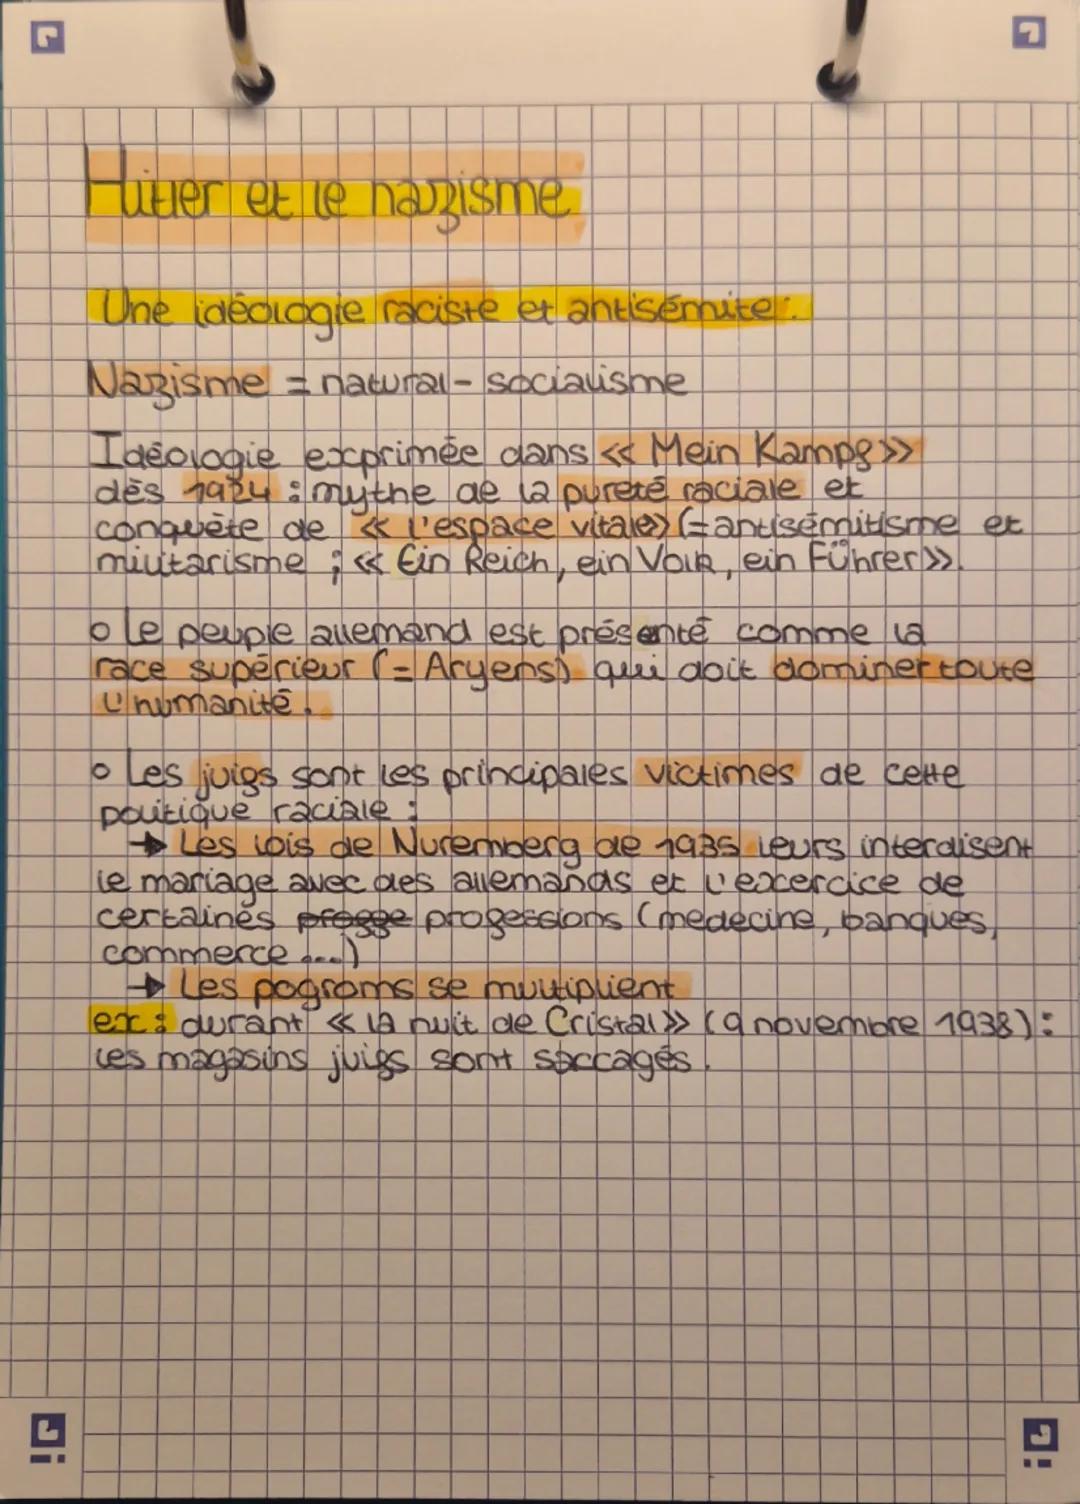 Hitler et le nazisme
Une idéologie raciste et antisémite :
Nazisme = natural-socialisme
Idéologie exprimée dans << Mein Kampf >>
dès 1924 : mythe de la pureté raciale et
conquète de << l'espace vitale>> (= antisémitisme et
militarisme ; << Ein Reich, ein Volk, ein Führer >>.
o Le peuple allemand est présenté comme la
race supérieur (= Aryens) qui doit dominer toute
l'humanité.
o Les juifs sont les principales victimes de cette
politique raciale :
→ Les lois de Nuremberg de 1935 leurs interdisent
le mariage avec des allemands et l'excercice de
certaines proffe professions (medecine, banques,
commerce ...)
→ Les pogroms se multiplient
ex : durant << la nuit de Cristal >> (9 novembre 1938) :
les magasins juifs sont saccagés.